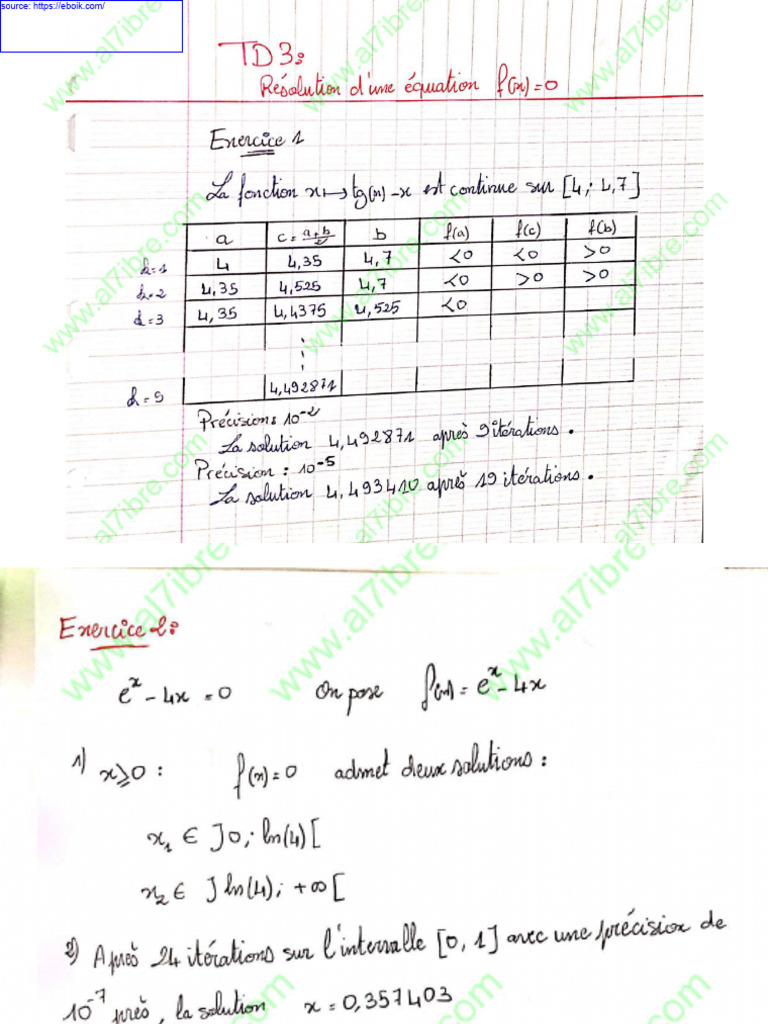 source: https://eboik.com/
TD3:
Résolution d'une équation f(x)=0
Exercice 1
La fonction x ↦ tg(x) - x est continue sur [4; 4,7]
a c = a+b/2 b f(a) f(c) f(b)
k=1 4 4,35 4,7 <0 <0 >0
k=2 4,35 4,525 4,7 <0 >0 >0
k=3 4,35 4,4375 4,525 <0
k=9 4,492871
Précision: 10⁻²
La solution 4,492871 après 9 itérations.
Précision: 10⁻⁵
La solution 4,493410 après 19 itérations.
Exercice 2:
eˣ - 4x = 0 On pose f(x) = eˣ - 4x
1) x ≥ 0 : f(x) = 0 admet deux solutions :
x₁ ∈ ]0; ln(4)[
x₂ ∈ ]ln(4); +∞[
2) Après 24 itérations sur l'intervalle [0, 1] avec une précision de
10⁻⁷ près, la solution x = 0,357403
www.al7ibre.com